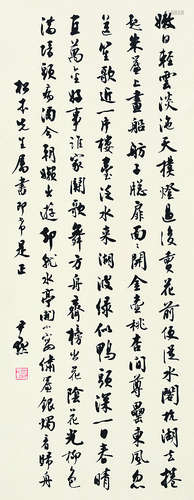 嫩日輕雲淡沱天撲燈過後賣花前便從水閣杭湖去捲
起朱簾上畫船舫子牕扉面面開金壺桃杏間尊罍東風忽
送笙歌近一片樓臺泛水來湖波綠似鴨頭深一日春晴
直萬金好事誰家鬭歌舞方舟齊榜出花陰花光柳色
滿牆頭病酒今朝暇出遊卻就水亭開小宴繡簾銀燭看歸舟
松本先生屬書即希是正
尹默